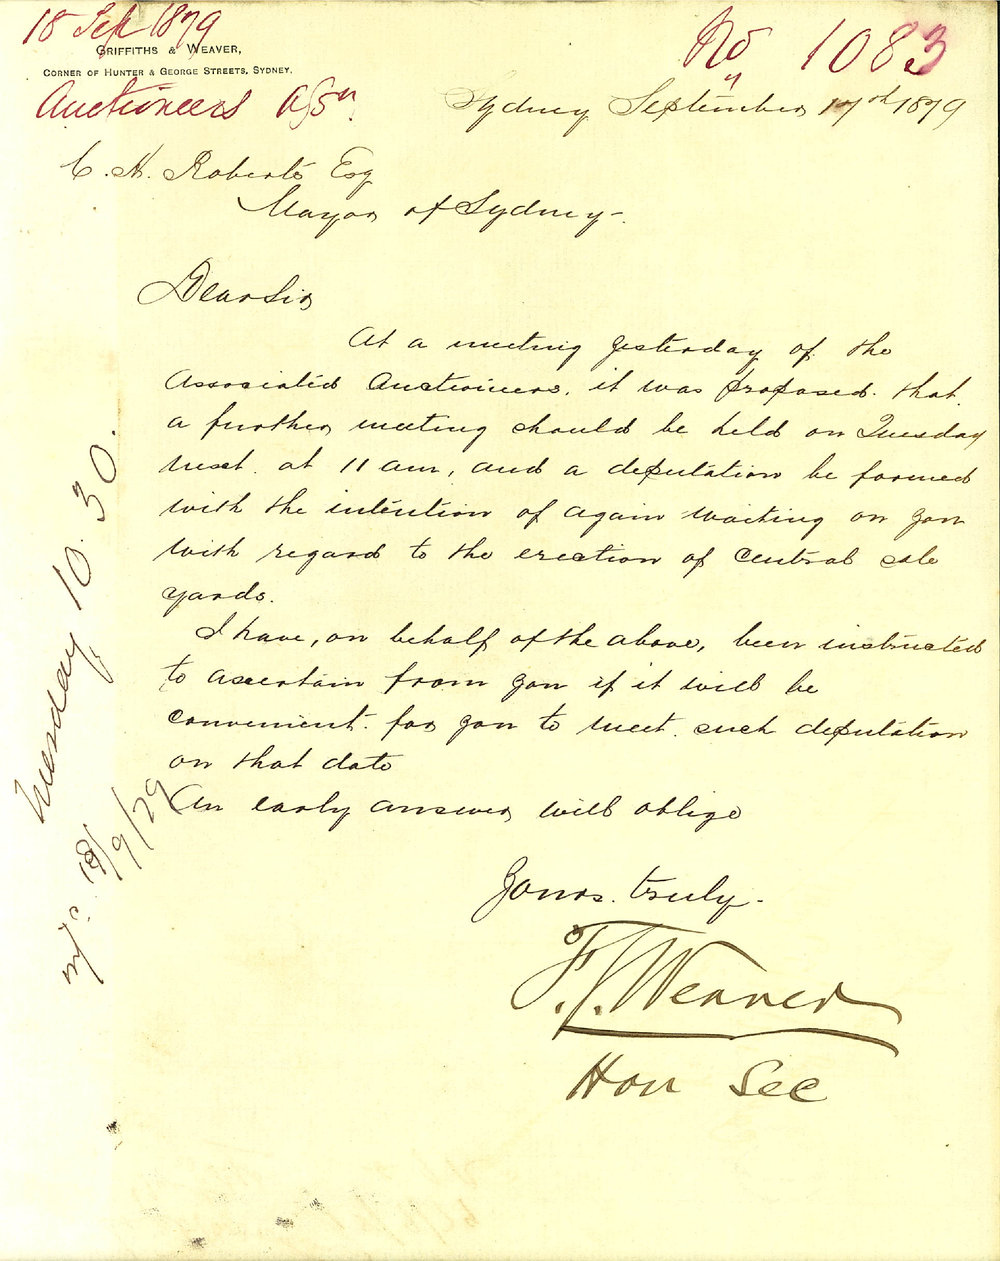 18 Sep 1879
GRIFFITHS & WEAVER,
CORNER OF HUNTER & GEORGE STREETS, SYDNEY.
Auctioneers Assn
No 1083
Sydney September 17th 1879
C. H. Roberts Esq
Mayor of Sydney -
Dear Sir
At a meeting yesterday of the
Associated Auctioneers, it was proposed that
a further meeting should be held on Tuesday
next. at 11 am, and a deputation be formed
with the intention of again waiting on you
with regard to the erection of central sale
yards.
I have, on behalf of the above, been instructed
to ascertain from you if it will be
convenient for you to meet such deputation
on that date
An early answer will oblige
Yours truly -
F. J. Weaver
Hon Sec
Tuesday 10.30.
18/9/79